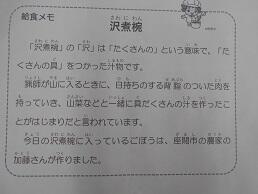 給食メモ
沢煮椀
「沢煮椀」の「沢」は「たくさんの」という意味で、「た
くさんの具」をつかった汁物です。
猟師が山に入るときに、日持ちのする背脂のついた肉を
持っていき、山菜などと一緒に具だくさんの汁を作ったこ
とがはじまりだと言われています。
今日の沢煮椀に入っているごぼうは、座間市の農家の
加藤さんが作りました。